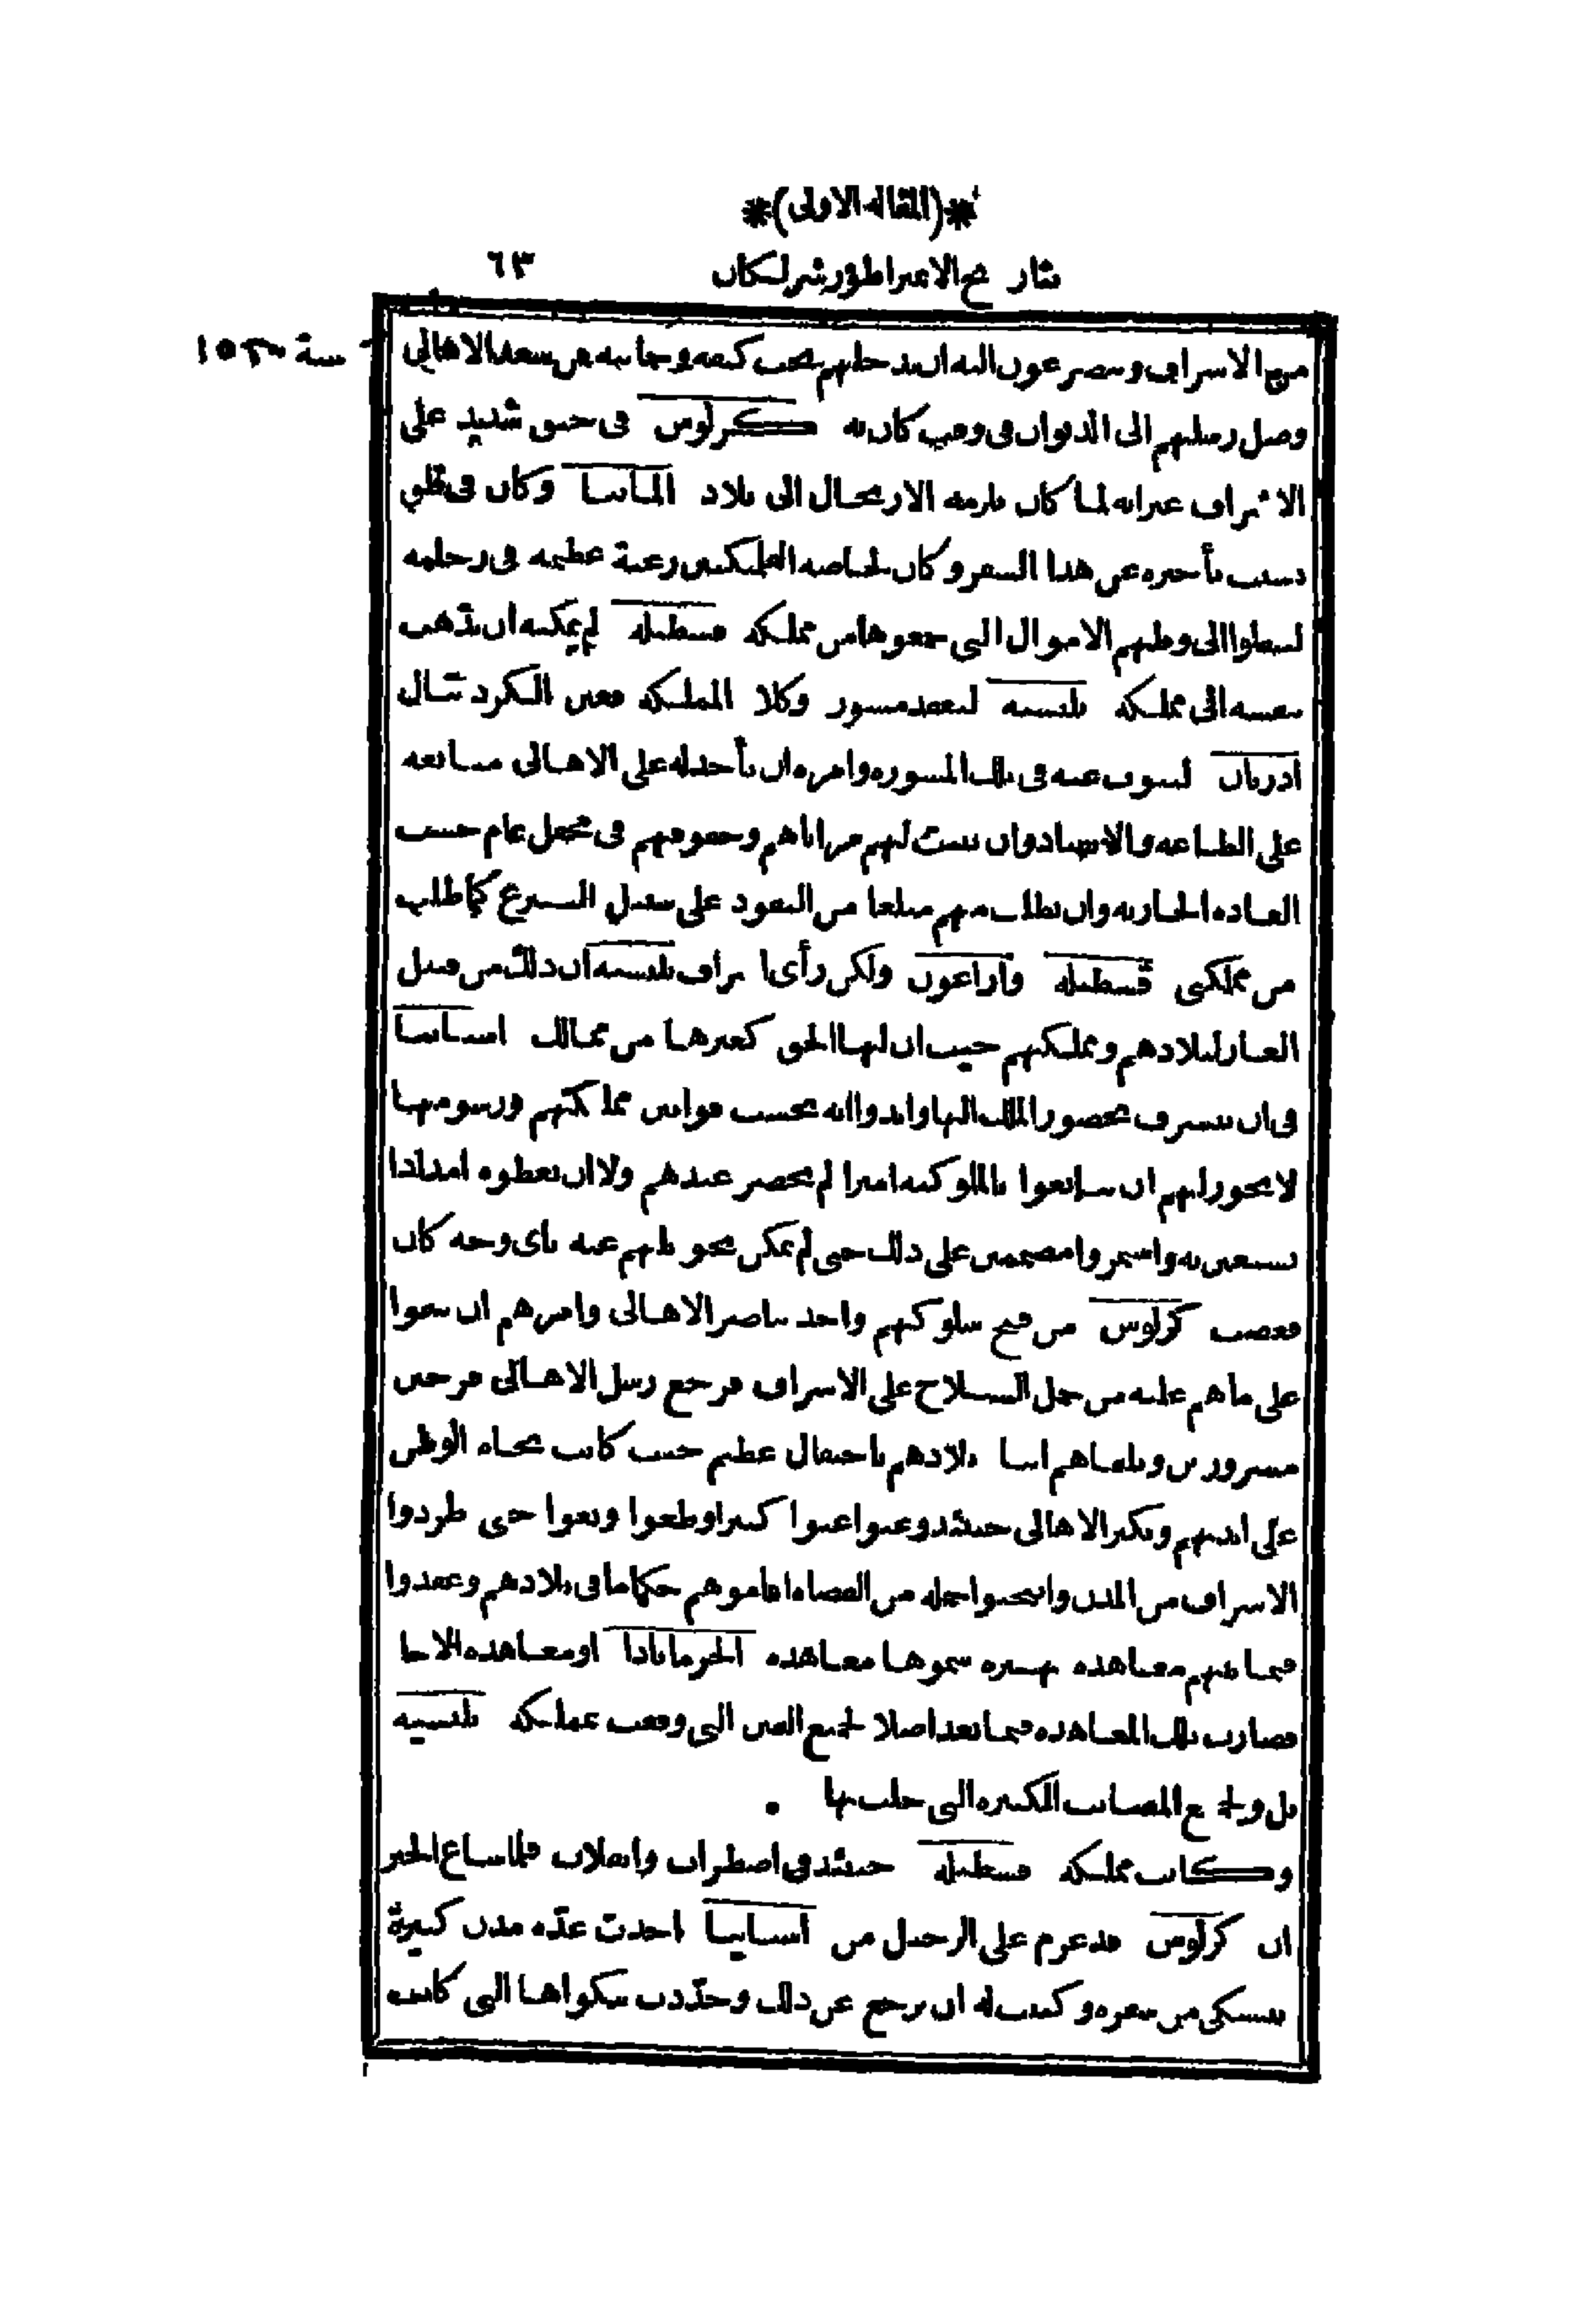 *(المقالة الاولى)*
بتاريخ الامبراطور شرلكان ٦٣
سنة ١٥٢٠
منهم الاشراف ويتضرعون اليه ان يدخلهم تحت كنفه وحمايته من الاهالى
وصل رسلهم الى الديوان فى وقت كان به كرلوس فى حنق شديد على
الاشراف غير انه لما كان يلزمه الارتحال الى بلاد المانيا وكان فى قلق
بسبب تأخيره عن هذا السفر وكان لخاصته الفلمنكيين رغبة عظيمة فى رحلته
لينقلوا الى وطنهم الاموال التى جمعوها من مملكة قسطيلة لم يمكنه ان يذهب
بنفسه الى مملكة بلنسية ليعقد مشور وكلا المملكة فعين الكردينال
ادريان لينوب عنه فى تلك المشورة وامره ان يأخذ له على الاهالى مبايعة
على الطاعة والانقياد وان يثبت لهم مزاياهم وحقوقهم فى محفل عام حسب
العادة الجارية وان يطلب منهم مبلغا من النقود على سبيل التبرع كما طلب
من مملكتى قسطيلة واراغون ولكن رأى اشراف بلنسية ان ذلك من قبيل
العار لبلادهم ومملكتهم حيث ان لها الحق كغيرها من ممالك اسبانيا
فى ان تتشرف بحضور الملك اليها وابدوا انه بحسب قوانين مملكتهم ورسومها
لا يجوز لهم ان يبايعوا بالملوكية اميرا لم يحضر عندهم ولا ان يعطوه امدادا
يستعين به واستمروا مصممين على ذلك حتى لم يمكن تحويلهم عنه باى وجه كان
فغضب كرلوس من قبح سلوكهم واخذ يناصر الاهالى وامرهم ان يبقوا
على ما هم عليه من حمل السلاح على الاشراف فرجع رسل الاهالى فرحين
مسرورين وتلقاهم ابنا بلادهم باحتفال عظيم حيث كانت نجاة الوطن
على ايديهم وتكبر الاهالى حينئذ وعتوا عتوا كبيرا وطغوا وبغوا حتى طردوا
الاشراف من المدن وانتخبوا جملة من القضاة اقاموهم حكاما فى بلادهم وعقدوا
فيما بينهم معاهدة شهيرة سموها معاهدة الجرمانادا او معاهدة الاخا
فصارت تلك المعاهدة فيما بعد اصلا لجميع الفتن التى وقعت بمملكة بلنسية
بل ولجميع المصائب الكبيرة التى حلت بها .
وكانت مملكة قسطيلة حينئذ فى اضطراب وانقلاب فلما شاع الخبر
ان كرلوس قد عزم على الرحيل من اسبانيا اخذت عدة مدن كبيرة
تتشكى من سفره وكتبت له ان يرجع عن ذلك وجددت شكواها التى كانت